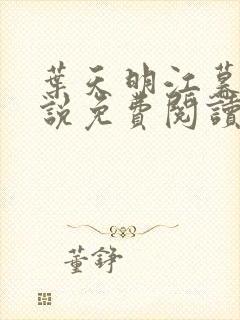 葉天明江幕
說免費閱讀
董錚